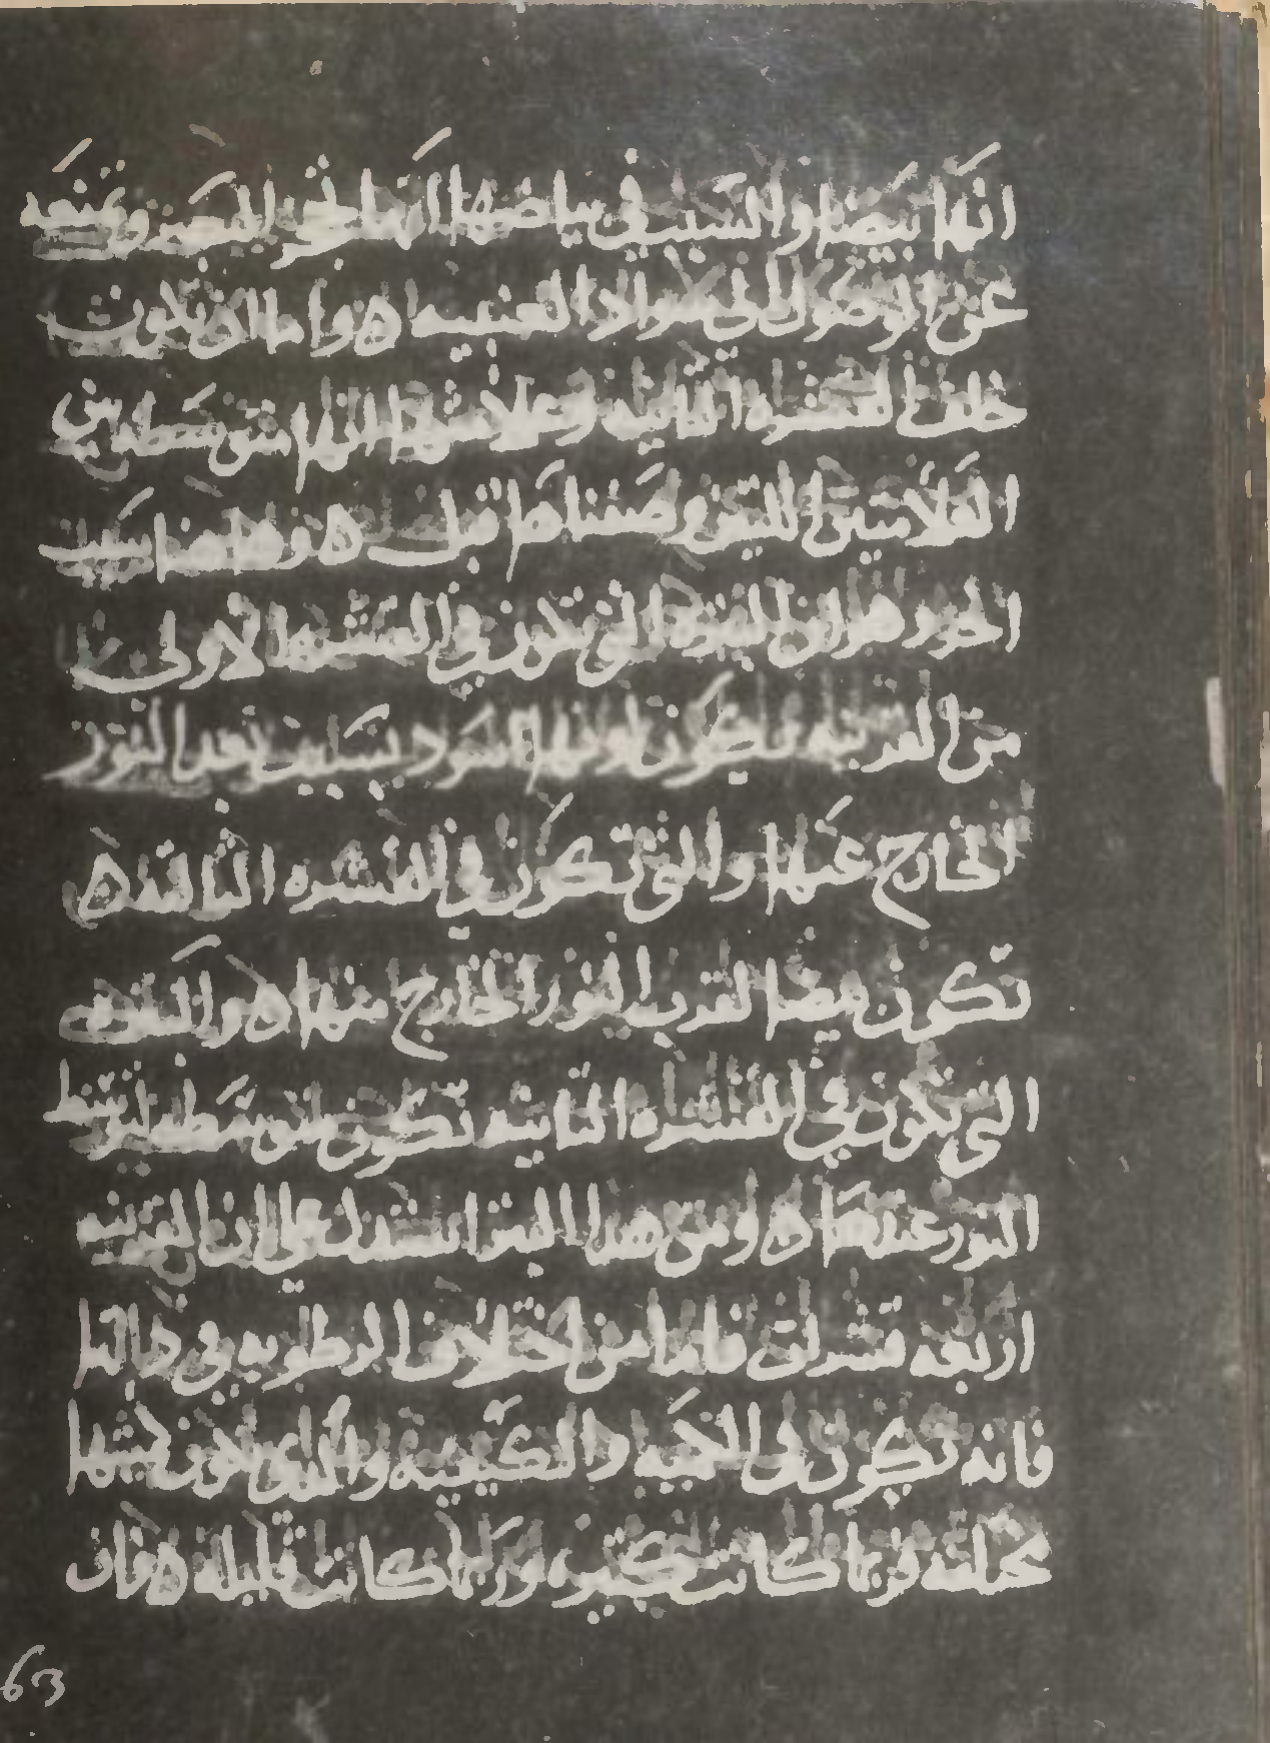 انها بيضا والسبب في بياضها انها تحجز البصر وتمنعه
عن الوصول الى سواد العنبيه ه واما ان تكون
خلف القشره الثانيه وعلامتها انها متوسطه بين
العلامتين اللتين وصفناهما قبل ه وهاهنا سبب
اخر وهو ان البثره التي تكون في القشره الاولى
من القرنيه يكون لونها اسود بسبب بعد النور
الخارج عنها والتي تكون في القشره الثالثه ه
تكون بيضا لقرب النور الخارج منها ه والبثره
التي تكون في القشره الثانيه تكون متوسطه لتوسط
النور عندها ه ومن هذا البثر استدل على ان القرنيه
اربعه قشرات فاما من اختلاف الرطوبه في حالتها
فانه تكون في الكميه والكيفيه والذي يكون كميتها
مختلفه فربما كانت كثيره وربما كانت قليله ه فان
63